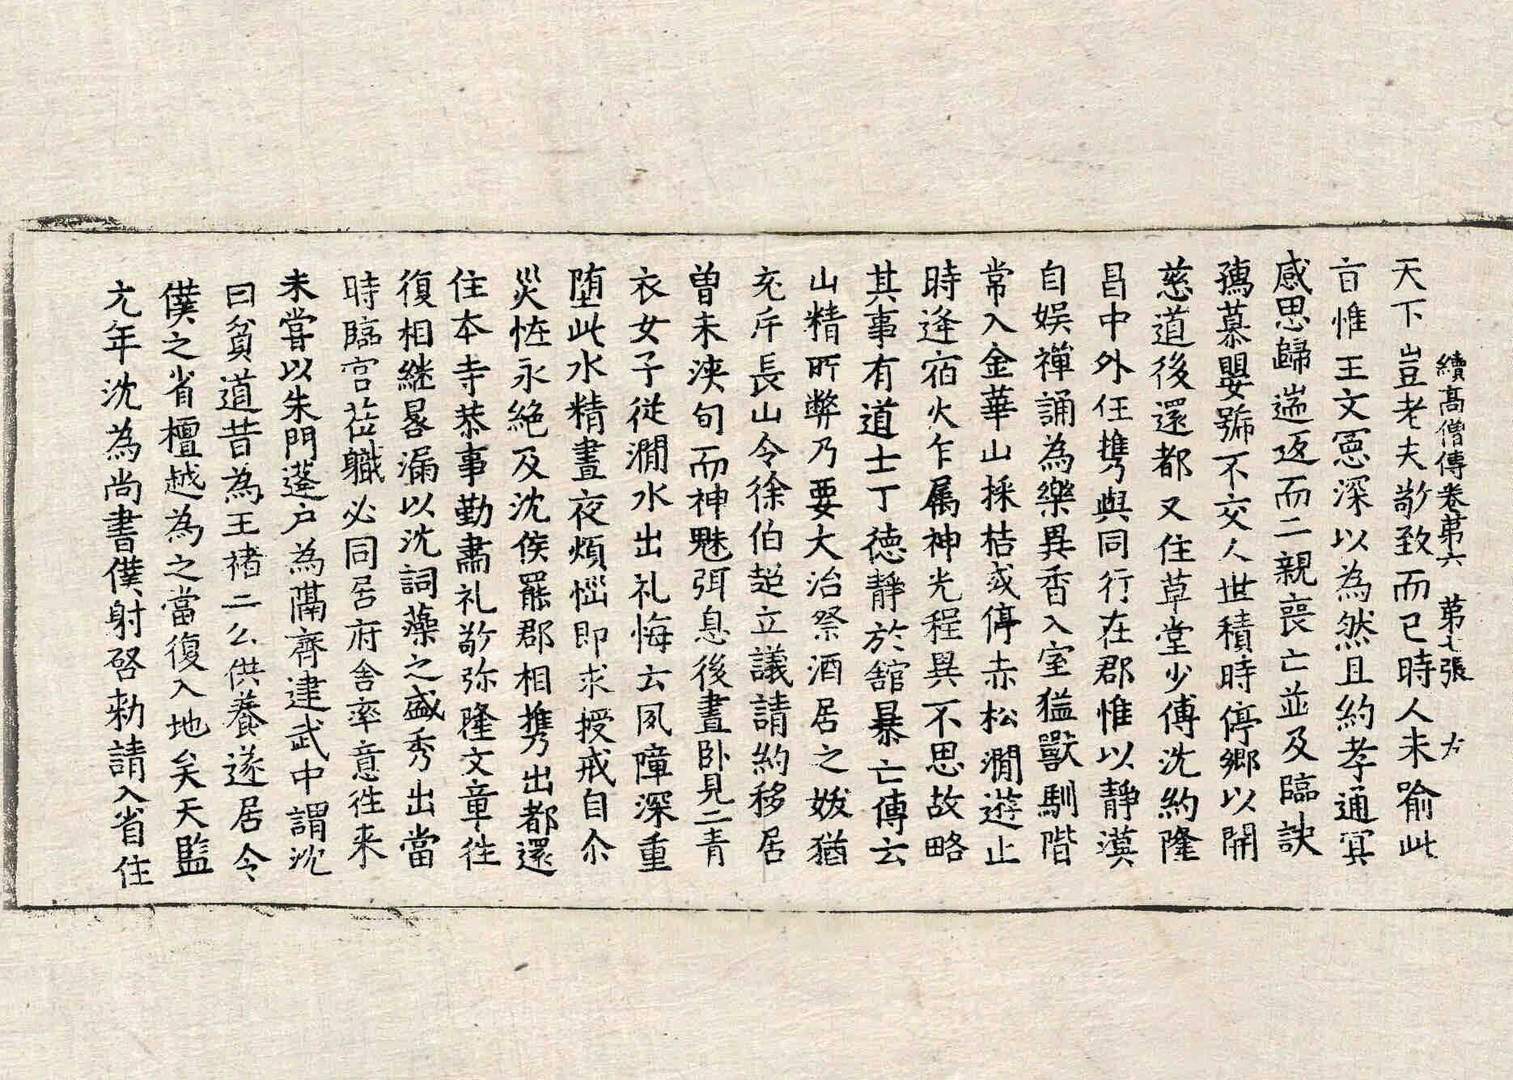 續高僧傳卷第六 第七張 左
天下豈老夫敬致而已時人未喻此
旨惟王文憲深以為然且約孝通冥
感思歸遄返而二親喪亡並及臨訣
孺慕嬰號不交人世積時停鄉以開
慈道後還都又住草堂少傅沈約隆
昌中外任携與同行在郡惟以靜漠
自娛禪誦為樂異香入室猛獸馴階
常入金華山採桔或停赤松澗遊止
時逢宿火乍属神光程異不思故略
其事有道士丁德靜於舘暴亡傳云
山精所弊乃要大治祭酒居之妭猶
充斥長山令徐伯超立議請約移居
曽未浹旬而神魅弭息後晝卧見二青
衣女子從澗水出礼悔云夙障深重
堕此水精晝夜煩惱即求授戒自尒
災恠永絕及沈侯罷郡相携出都還
住本寺恭事勤肅礼敬弥隆文章徃
復相継晷漏以沈詞藻之盛秀出當
時臨官莅職必同居府舎率意徃来
未嘗以朱門蓬户為隔齊建武中謂沈
曰貧道昔為王褚二公供養遂居令
僕之省檀越為之當復入地矣天監
元年沈為尚書僕射啓勑請入省住